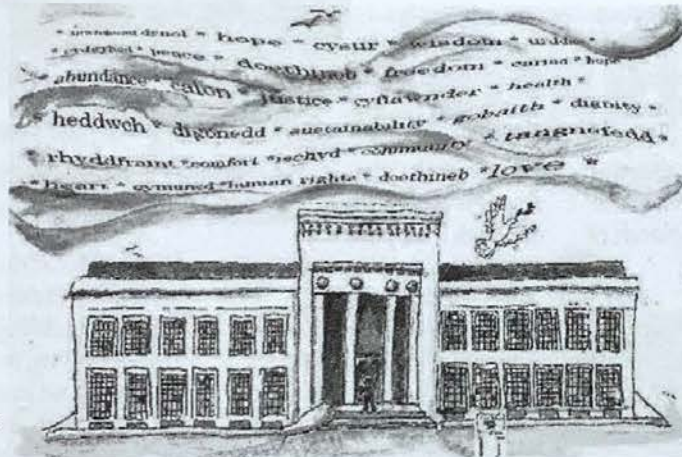 * hope * cysur * wisdom *
* peace * doethineb * freedom * cariad * hope
* abundance * calon * justice * cyfiawnder * health *
* heddwch * digonedd * sustainability * gobaith * dignity *
* rhyddfraint * comfort * iechyd * community * tangnefedd *
* heart * cymuned * human rights * doethineb * love *